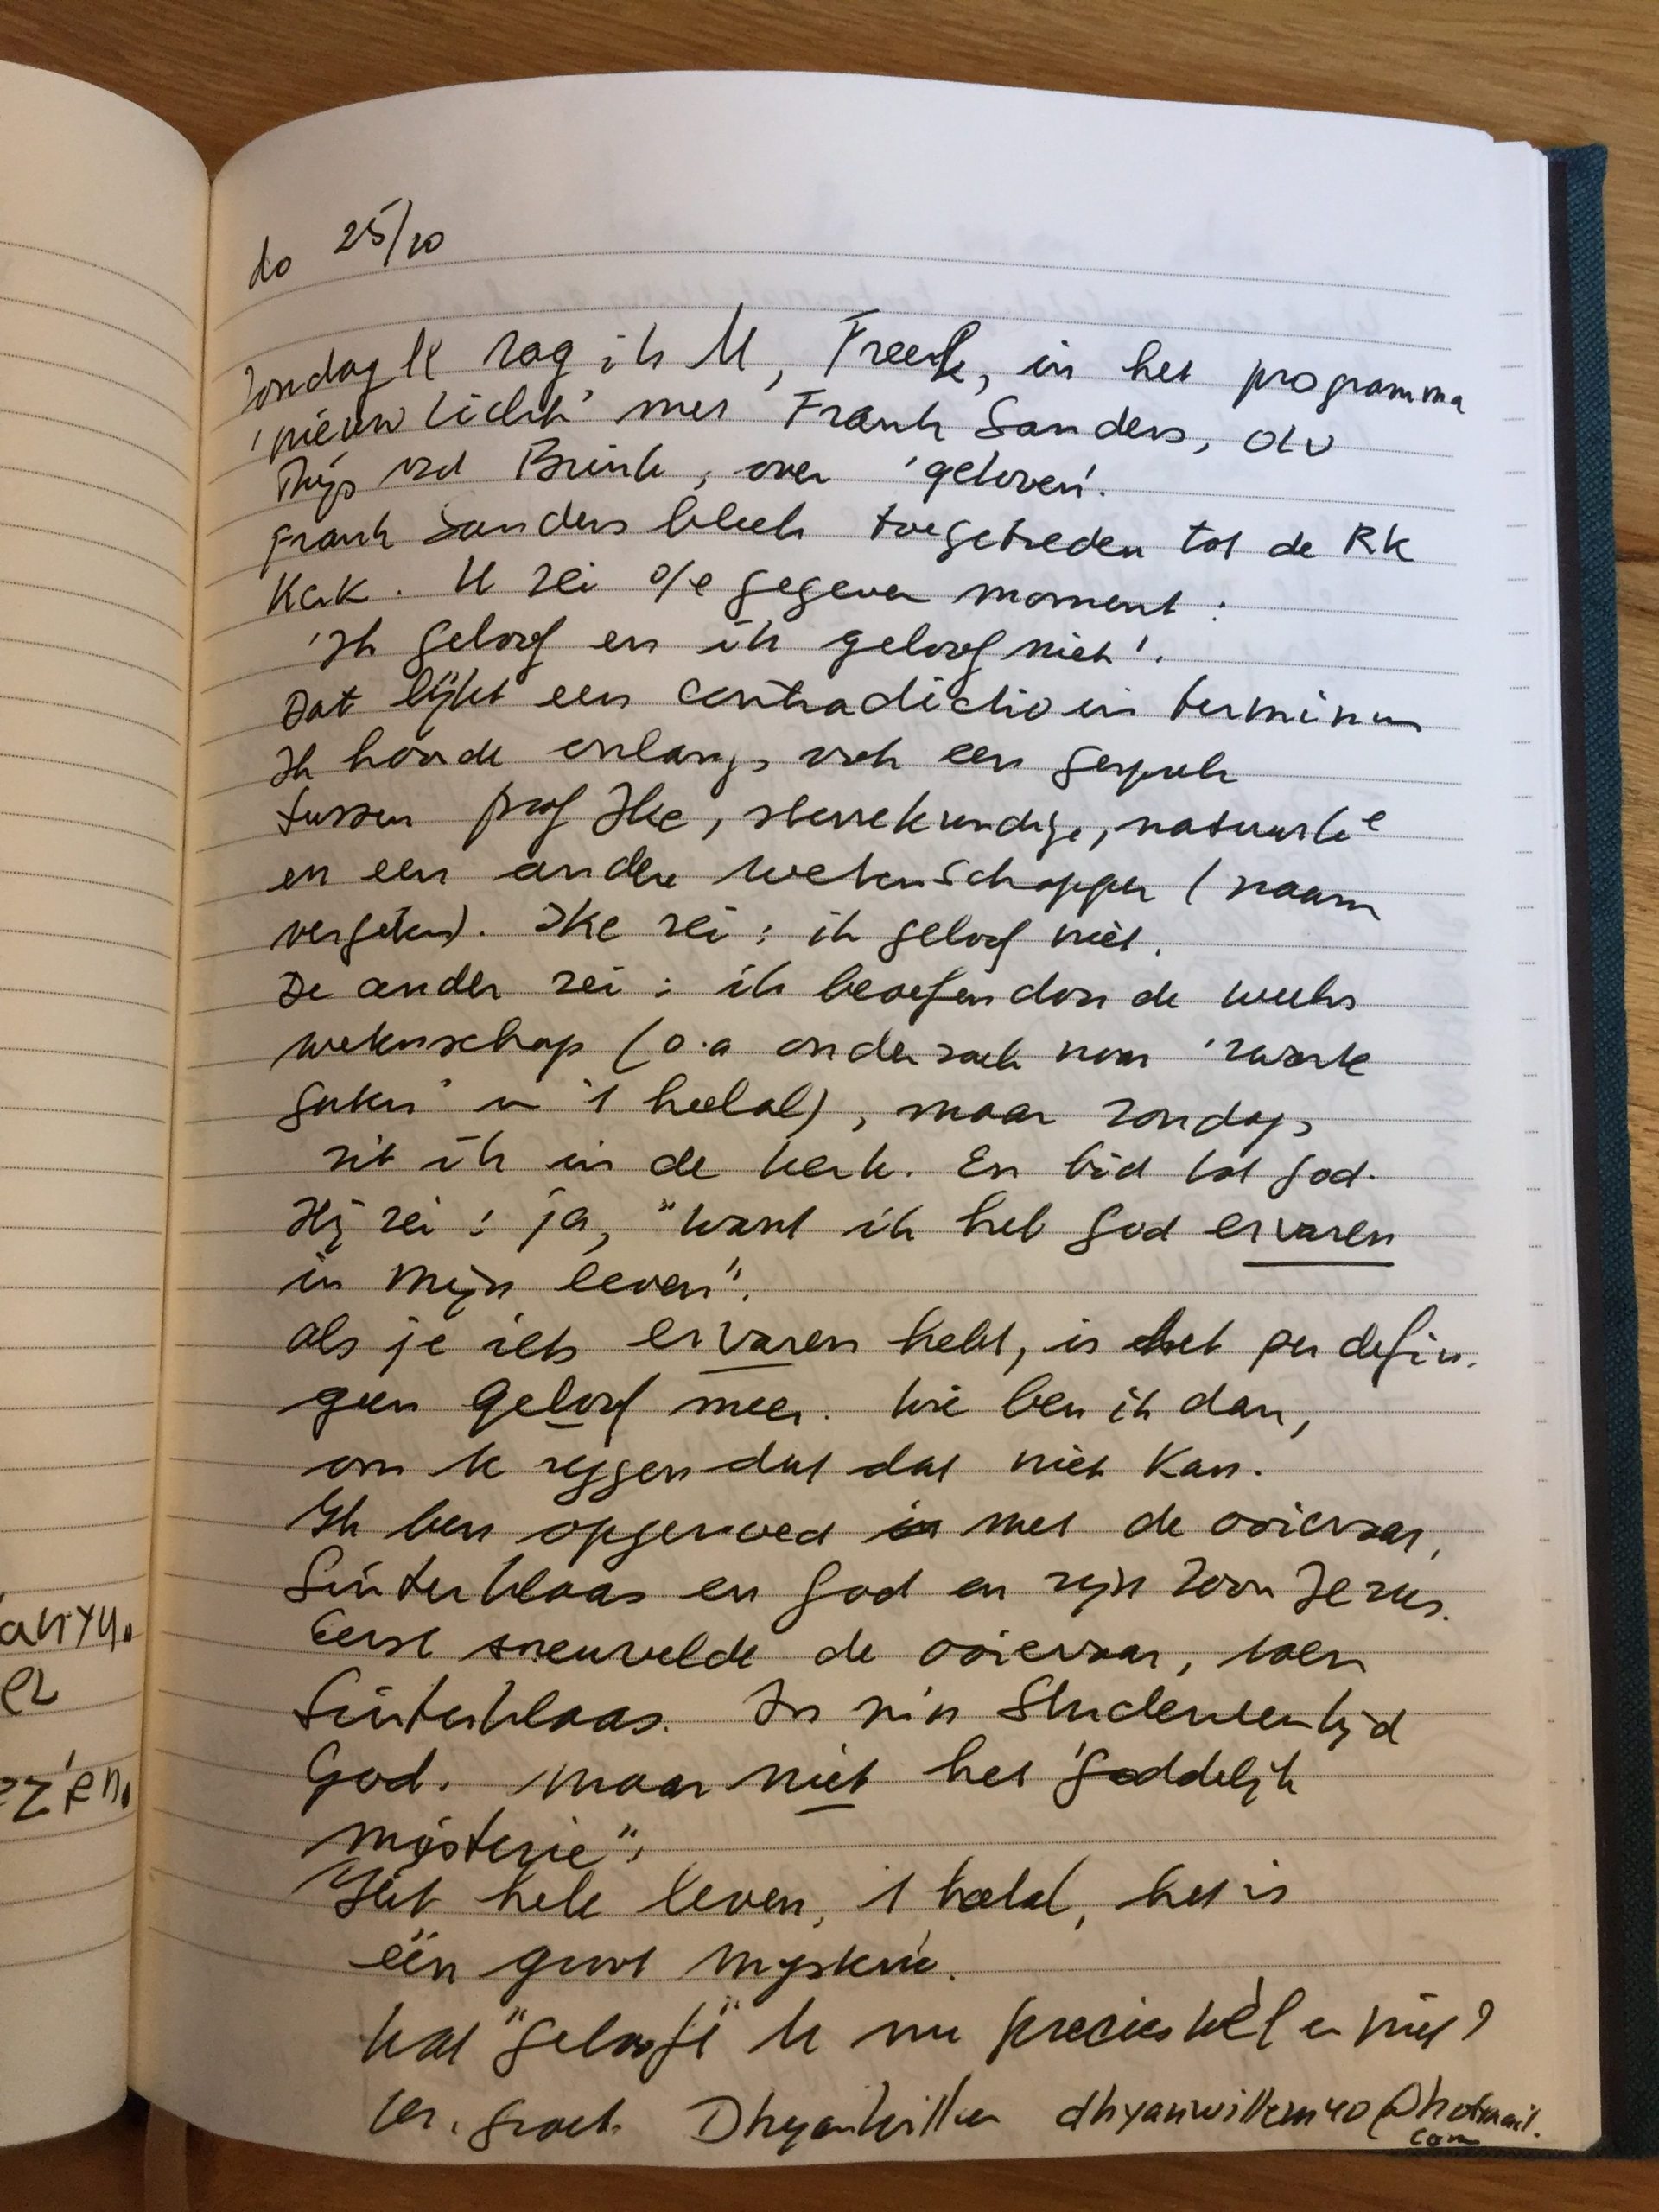 do 25/10
Zondag ll zag ik U, Freek, in het programma
'nieuw licht' met Frank Sanders, olv
Thijs vd Brink, over 'geloven'.
Frank Sanders bleek toegetreden tot de RK
Kerk. U zei o/e gegeven moment:
'Ik geloof en ik geloof niet'.
Dat lijkt een contradictio in terminum
Ik hoorde onlangs ook een gesprek
tussen prof Ike, sterrekundige, natuurk e
en een andere wetenschapper (naam
vergeten). Ike zei: ik geloof niet.
De ander zei: ik beoefen door de weeks
wetenschap (o.a onderzoek naar 'zwarte
gaten' in 't heelal), maar zondags
zit ik in de kerk. En bid tot God.
Hij zei: ja, "want ik heb God ervaren
in mijn leven".
als je iets ervaren hebt, is het per defin.
geen geloof meer. Wie ben ik dan,
om te zeggen dat dat niet kan.
Ik ben opgevoed met de ooievaar,
Sinterklaas en God en zijn zoon Jezus.
Eerst sneuvelde de ooievaar, toen
Sinterklaas. In m'n Studententijd
God. maar niet het 'goddelijk
mysterie".
Het hele leven, 't heelal, het is
één groot mysterie.
Wat "gelooft" U nu precies wèl en niet?
Vr. groet. Dhyan Willem dhyanwillem40@hotmail.
com
anyu.
er
ezien.